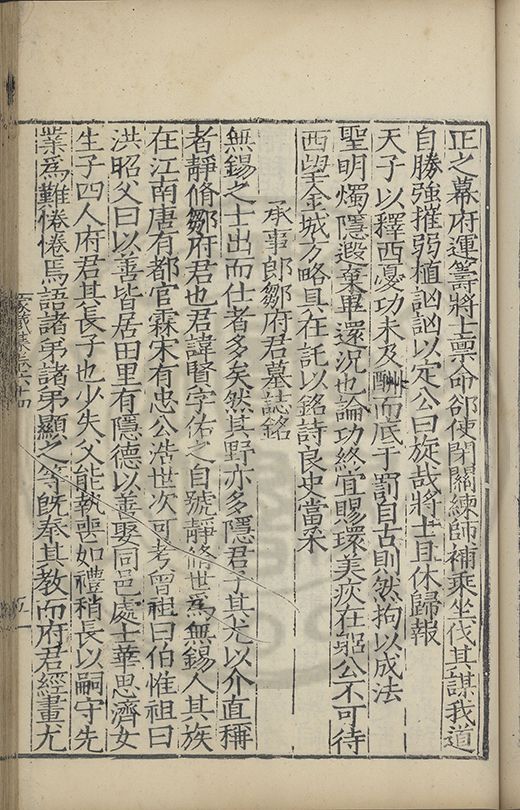 正之幕府運籌將士稟命卻使閉關練師補乘坐伐其謀我道
自勝強摧弱植訩訩以定公曰旋哉將士且休歸報
天子以釋西憂功未及酬而底于罰自古則然拘以成法
聖明燭隱瑕棄畢還況也論功終宜賜環美疢在躬公不可待
西望金城方略具在託以銘詩良史當采
承事郎鄒府君墓誌銘
無錫之士出而仕者多矣然其野亦多隱君子其尤以介直稱
者靜脩鄒府君也君諱賢字佐之自號靜脩世爲無錫人其族
在江南唐有都官霖宋有忠公浩世次可考曾祖曰伯惟祖曰
洪昭父曰以善皆居田里有隱德以善娶同邑處士華思濟女
生子四人府君其長子也少失父能執喪如禮稍長以嗣守先
業爲難惓惓焉語諸弟諸弟顯之等旣奉其教而府君經畫尤